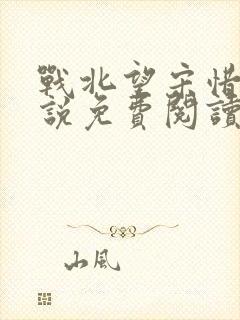 戰北望宋惜
說免費閱讀
山風